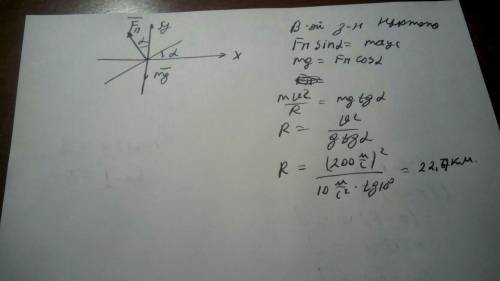 F̅п
y
α
α
x
m̅g̅
В-ой з-н Ньютона
Fп sinα = maцс
mg = Fп cosα
mv²/R = mg tgα
R = v²/(g tgα)
R = (200 м/с)²/(10 м/с² · tg10°) = 22,7 км.